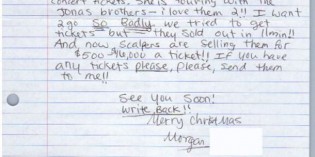 concert tickets. She is touring with the
Jonas brothers - I love them 2!! I want
2 go So Badly. we tried to get
tickets but they sold out in 11min!!
And now, scalpers are selling them for
$500 - $16,000 a ticket!! If you have
any tickets please, please, send them
to me!!
See You Soon!
Write Back!!
Merry Christmas
Morgan